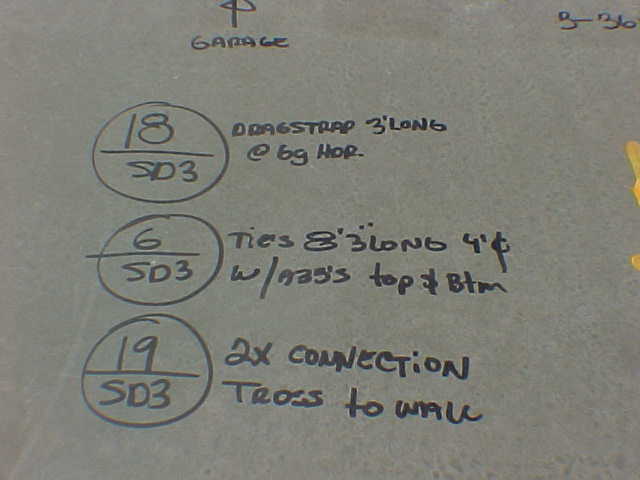 GARAGE
3-36
18
SD3
DRAGSTRAP 3'LONG
@ 6g HOR.
6
SD3
Ties 8'3" LONG 4'¢
W/A35'S top & Btm
19
SD3
2X CONNECTiON
TROSS to WALL